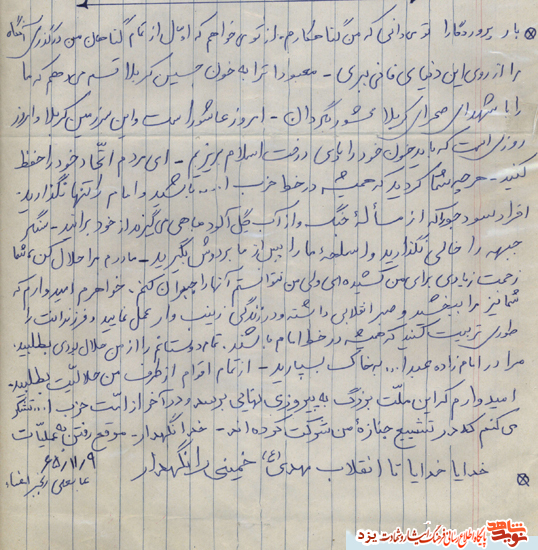 بار پروردگارا تو می‌دانی که من گناهکارم. از تو می‌خواهم که اول از تمام گناهان من درگذری آنگاه
مرا از روی این دنیای فانی ببری - معبودا ترا به خون حسین کربلا قسم می‌دهم که ما
را با شهدای صحرای کربلا محشور بگردان - امروز عاشوراست و این سرزمین کربلا و امروز
روزی است که باید خون خود را پای درخت اسلام بریزیم - ای مردم اتحاد خود را حفظ
کنید - هرچه شما کردید که همیشه در خط حزب ا... باشید و امام را تنها نگذارید
افراد سودجو را که از مسألهٔ جنگ و از آب گل آلود ماهی می‌گیرند از خود برانند - سنگر
جبهه را خالی نگذارید و اسلحهٔ ما را پس از ما بر دوش بگیرید - مادرم مرا حلال کن، شما
زحمت زیادی برای من کشیده‌ای ولی من نتوانستم آنها را جبران کنم. خواهرم امیدوارم که
شما نیز مرا ببخشید و صبر انقلابی داشته و در زندگی زینب وار عمل نمایید و فرزندانت را
طوری تربیت کنید که همیشه در خط امام باشند. تمام دوستانم را از من حلال بودی بطلبید.
مرا در امامزاده عبدا... به خاک بسپارید - از تمام اقوام از طرف من حلالیت بطلبید.
امیدوارم که این ملت بزرگ به پیروزی نهایی برسد و در آخر از امت حزب ا... تشکر
می‌کنم که در تشییع جنازهٔ من شرکت کرده‌اند - خدا نگهدار - موقع رفتن به عملیات
۶۵/۱۱/۹
خدایا خدایا تا انقلاب مهدی (عج) خمینی را نگهدار
نوید شاهد پایگاه اطلاع رسانی فرهنگ ایثار و شهادت یزد